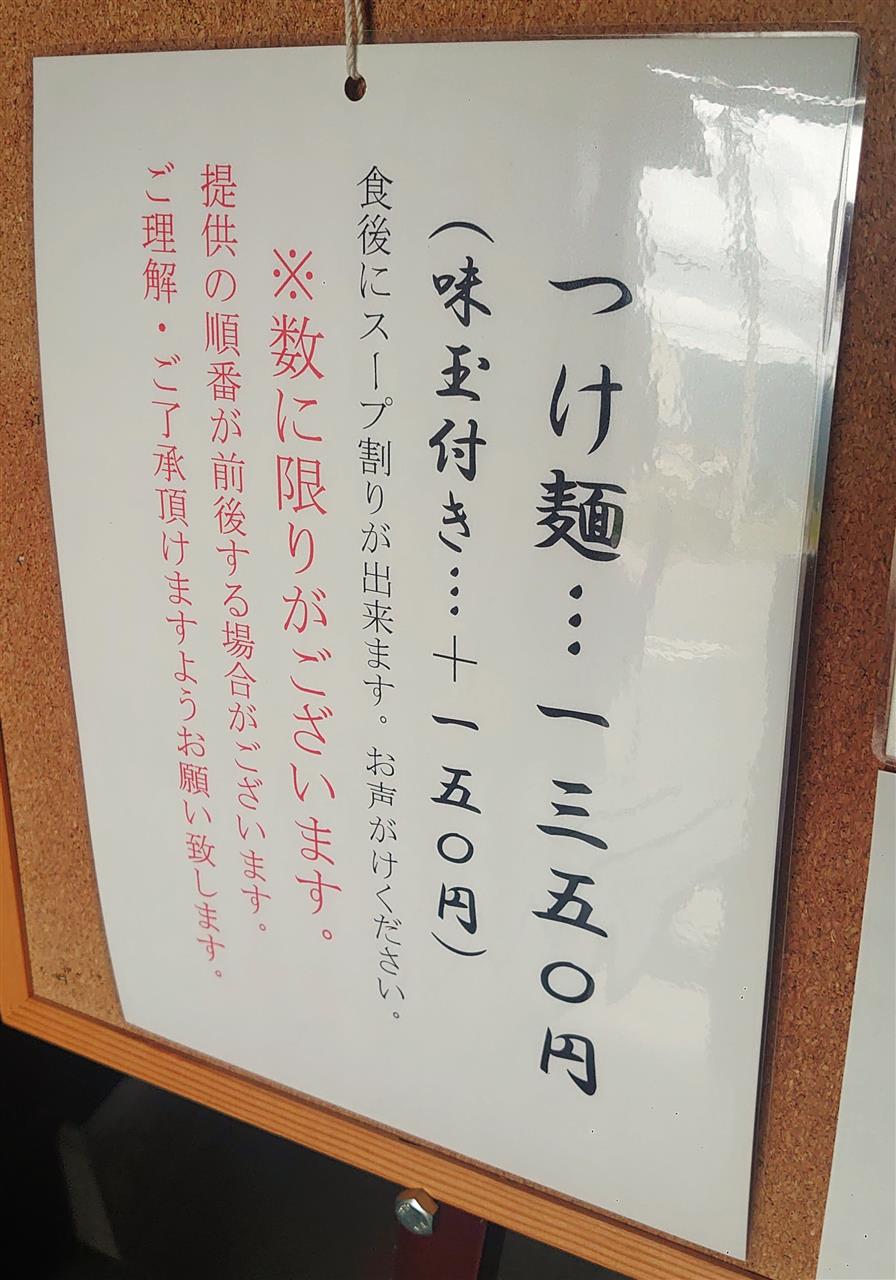 つけ麺…一三五〇円
（味玉付き…＋一五〇円）
食後にスープ割りが出来ます。お声がけください。
※数に限りがございます。
提供の順番が前後する場合がございます。
ご理解・ご了承頂けますようお願い致します。